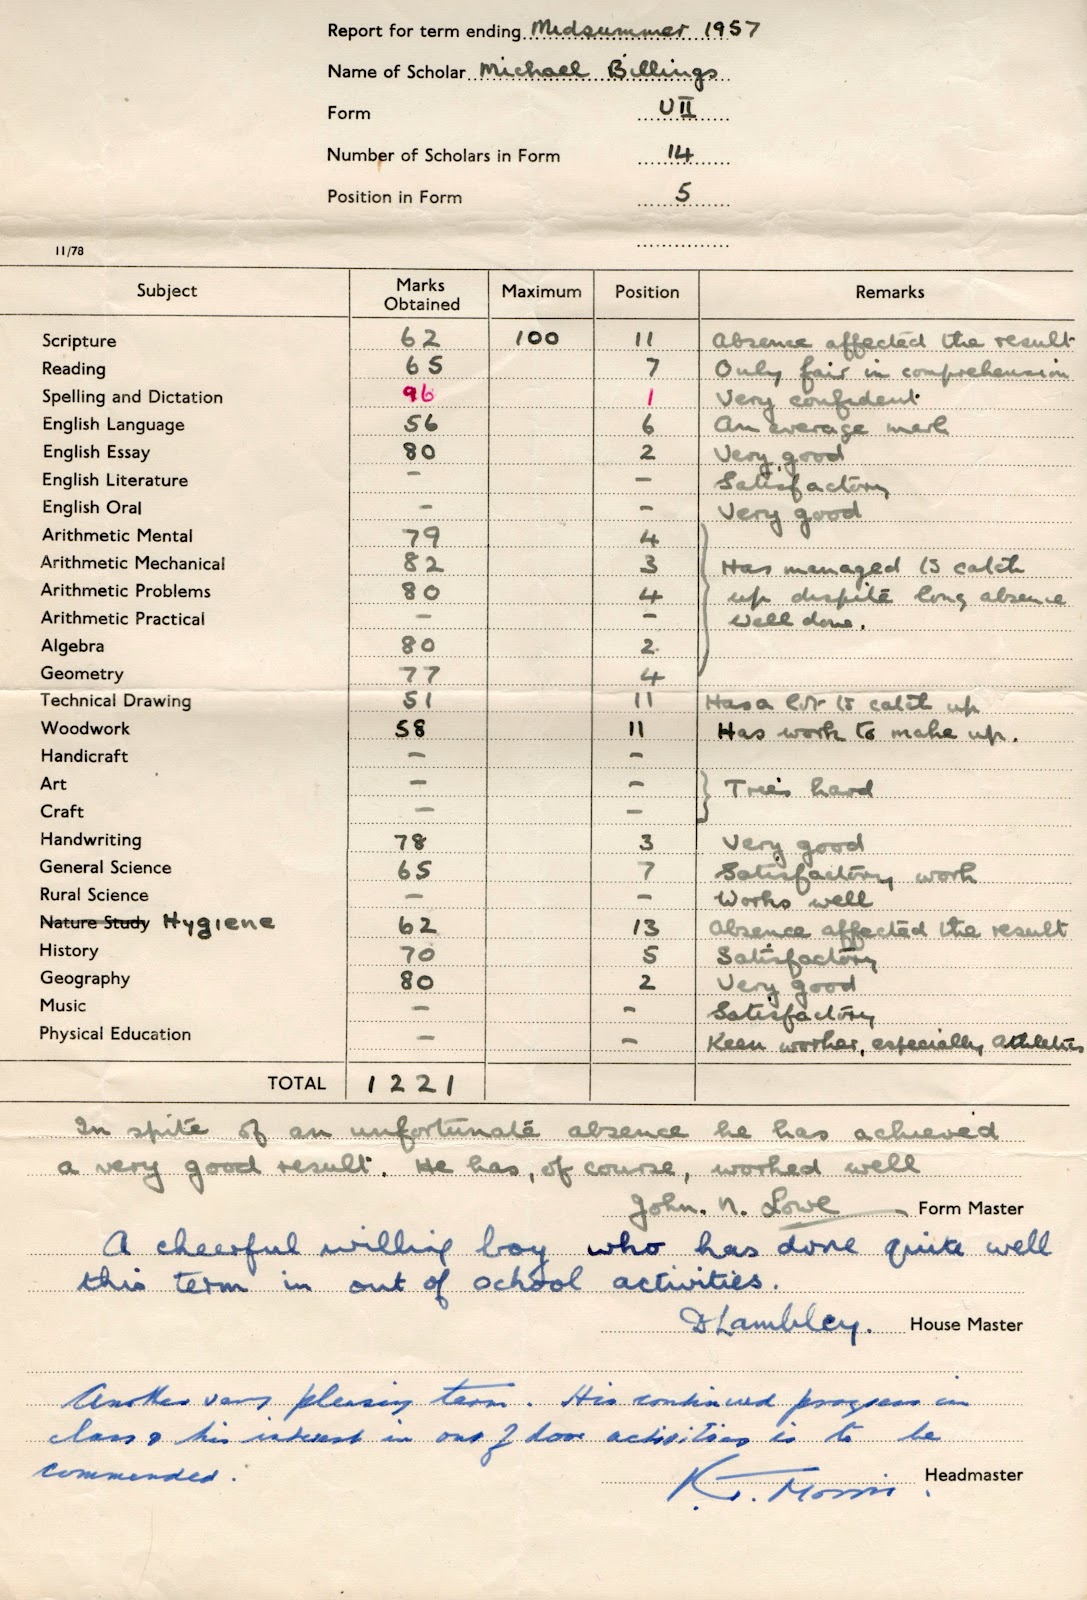 Report for term ending Midsummer 1957
Name of Scholar Michael Billings
Form U II
Number of Scholars in Form 14
Position in Form 5
11/78
Subject Marks Obtained Maximum Position Remarks
Scripture 62 100 11 Absence affected the result
Reading 65 7 Only fair in comprehension
Spelling and Dictation 96 1 Very confident
English Language 56 6 An average mark
English Essay 80 2 Very good
English Literature - - Satisfactory
English Oral - - Very good
Arithmetic Mental 79 4
Arithmetic Mechanical 82 3 Has managed to catch
Arithmetic Problems 80 4 up despite long absence
Arithmetic Practical - - Well done.
Algebra 80 2
Geometry 77 4
Technical Drawing 51 11 Has a lot to catch up
Woodwork 58 11 Has work to make up.
Handicraft - -
Art - - Tries hard
Craft - -
Handwriting 78 3 Very good
General Science 65 7 Satisfactory work
Rural Science - - Works well
Nature Study Hygiene 62 13 Absence affected the result
History 70 5 Satisfactory
Geography 80 2 Very good
Music - - Satisfactory
Physical Education - - Keen worker, especially athletics
TOTAL 1221
In spite of an unfortunate absence he has achieved
a very good result. He has, of course, worked well
John. N. Lowe Form Master
A cheerful willing boy who has done quite well
this term in out of school activities.
D Lambley. House Master
Another very pleasing term. His continued progress in
class & his interest in out of door activities is to be
commended.
K. J. Morris. Headmaster